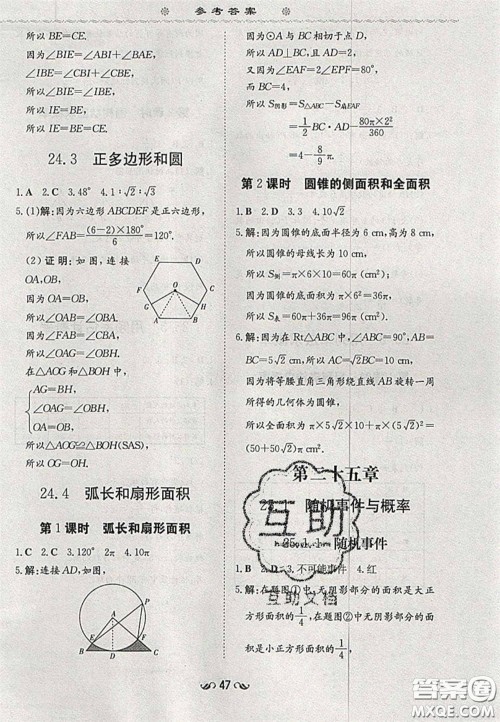 参考答案
所以 BE=CE.
因为∠BIE=∠ABI+∠BAE,
∠IBE=∠CBI+∠CBE,
所以∠BIE=∠IBE.
所以 IE=BE.
所以 IE=BE=CE.
24.3 正多边形和圆
1. A 2. C 3. 48° 4. 1∶√2∶√3
5. (1)解:因为六边形 ABCDEF 是正六边形,
所以∠FAB=(6-2)×180°/6=120°.
(2) 证明:如图, 连接
OA,OB,
因为 OA=OB,
所以∠OAB=∠OBA.
因为∠FAB=∠CBA,
所以∠OAG=∠OBH.
在△AOG 和△BOH 中
AG=BH,
∠OAG=∠OBH,
OA=OB,
所以△AOG≌△BOH(SAS),
所以 OG=OH.
E D F C O G H A B
24.4 弧长和扇形面积
第 1 课时 弧长和扇形面积
1. C 2. C 3. 120° 2π 4. 10π
5. 解:连接 AD,如图,
P A E F B D C
因为⊙A 与 BC 相切于点 D,
所以 AD⊥BC,且 AD=2,
又因为∠EAF=2∠EPF=80°,
BC=4,
所以 S阴影=S△ABC-S扇形EAF
=1/2 BC·AD-80π×2²/360
=4-8/9 π.
第 2 课时 圆锥的侧面积和全面积
1. A 2. D 3. 3 4. 10√2
5. 解:因为圆锥的底面半径为 6 cm,高为 8 cm,
所以圆锥的母线长为 10 cm,
所以 S侧=π×6×10=60π(cm²);
因为圆锥的底面积为 π×6²=36π,
所以 S全=60π+36π=96π(cm²).
6. 解:因为在 Rt△ABC 中,∠ABC=90°,AB=
BC=5√2 cm,所以 AC=10 cm.
将等腰直角三角形绕直线 AB 旋转一周
所得的几何体为圆锥,
所以全面积为 π×5√2×10+π×(5√2)²=
(50+50√2)π(cm²).
第二十五章
随机事件与概率
25.1.1 随机事件
1. B 2. D 3. 不可能事件 4. 红
5. 解:在题图①中无阴影部分的面积是大正
方形面积的1/4,在题图②中无阴影部分的面
积是小正方形面积的1/4,
互助
互助文档
47
答案圈
MXQE.COM